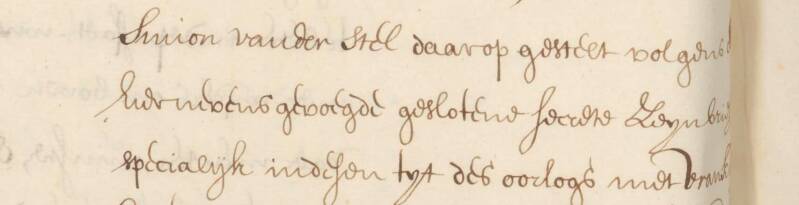 Simon vander Stel daarop gestelt volgens
hiernevens gevoegde geslotene secrete
specialijk indesen tyt des oorlogs met